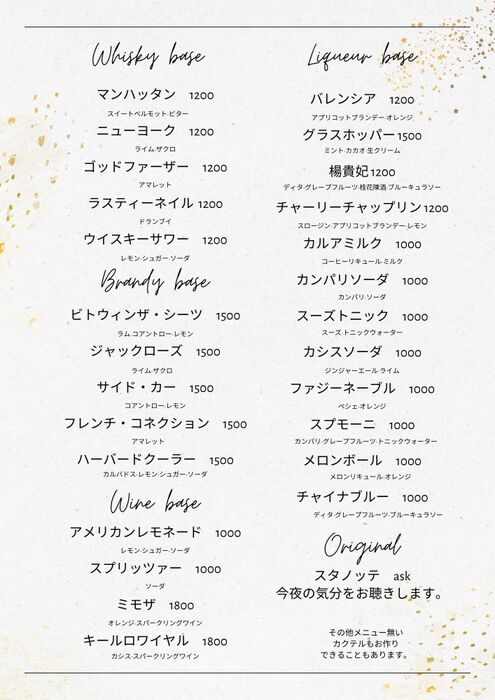 Whisky base
マンハッタン 1200
スイートベルモット·ビター
ニューヨーク 1200
ライム·ザクロ
ゴッドファーザー 1200
アマレット
ラスティーネイル 1200
ドランブイ
ウイスキーサワー 1200
レモン·シュガー·ソーダ
Brandy base
ビトウィンザ・シーツ 1500
ラム·コアントロー·レモン
ジャックローズ 1500
ライム·ザクロ
サイド・カー 1500
コアントロー·レモン
フレンチ・コネクション 1500
アマレット
ハーバードクーラー 1500
カルバドス·レモン·シュガー·ソーダ
Wine base
アメリカンレモネード 1000
レモン·シュガー·ソーダ
スプリッツァー 1000
ソーダ
ミモザ 1800
オレンジ·スパークリングワイン
キールロワイヤル 1800
カシス·スパークリングワイン
Liqueur base
バレンシア 1200
アプリコットブランデー·オレンジ
グラスホッパー 1500
ミント·カカオ·生クリーム
楊貴妃 1200
ディタ·グレープフルーツ·桂花陳酒·ブルーキュラソー
チャーリーチャップリン 1200
スロージン·アプリコットブランデー·レモン
カルアミルク 1000
コーヒーリキュール·ミルク
カンパリソーダ 1000
カンパリ·ソーダ
スーズトニック 1000
スーズ·トニックウォーター
カシスソーダ 1000
ジンジャーエール·ライム
ファジーネーブル 1000
ペシェ·オレンジ
スプモーニ 1000
カンパリ·グレープフルーツ·トニックウォーター
メロンボール 1000
メロンリキュール·オレンジ
チャイナブルー 1000
ディタ·グレープフルーツ·ブルーキュラソー
Original
スタノッテ ask
今夜の気分をお聴きします。
その他メニュー無い
カクテルもお作り
できることもあります。